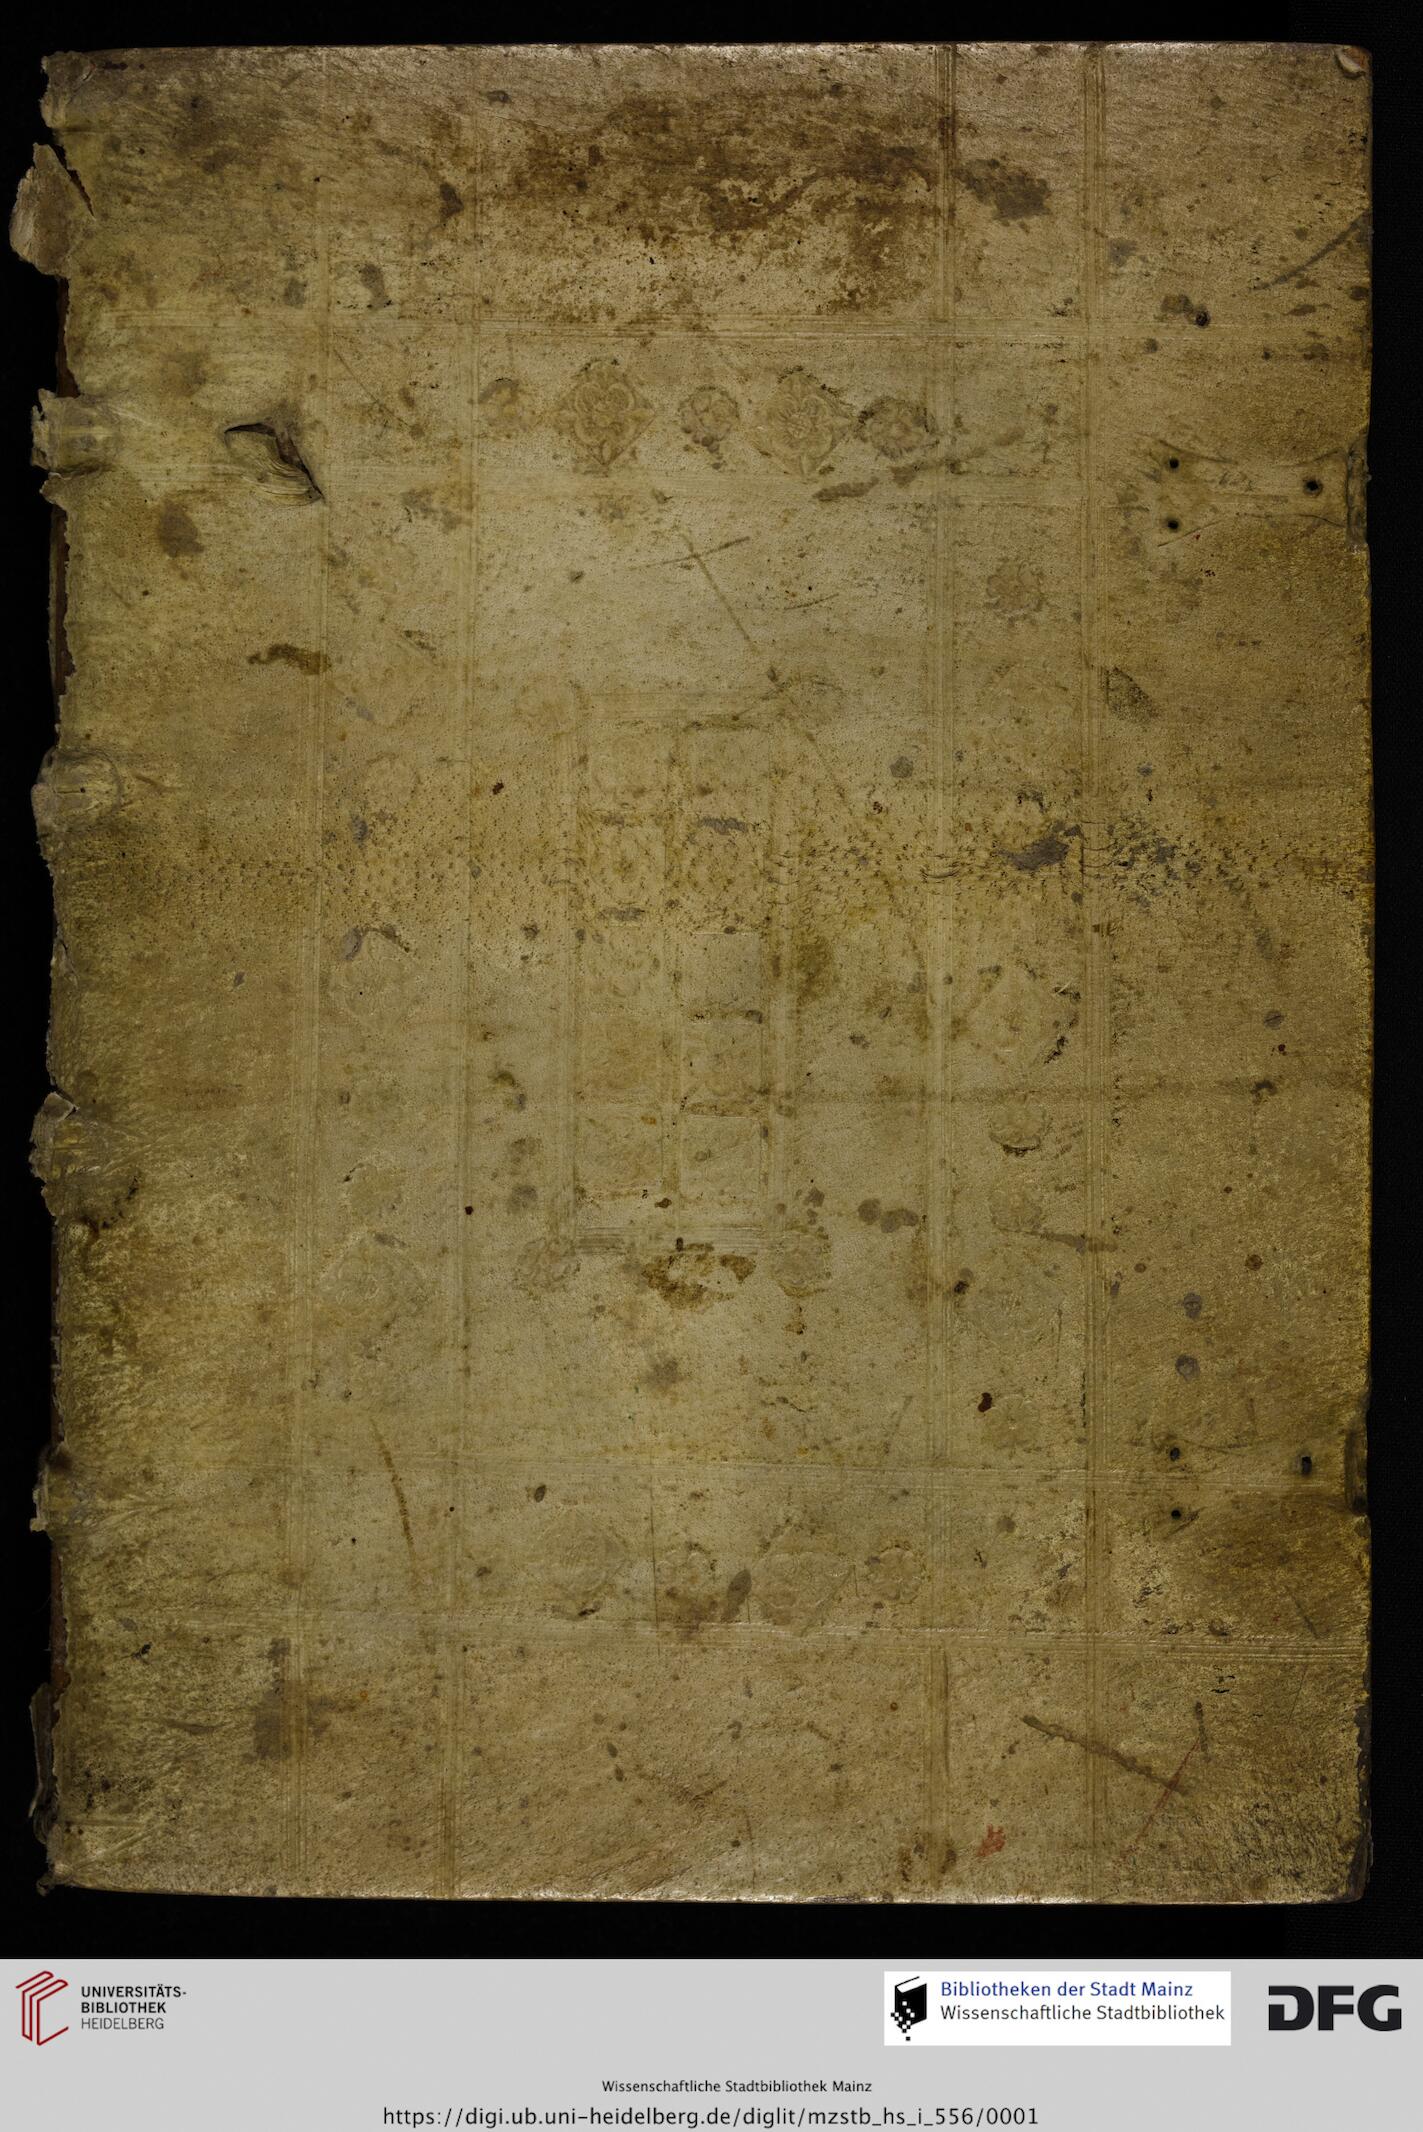 UNIVERSITÄTS-
BIBLIOTHEK
HEIDELBERG
Bibliotheken der Stadt Mainz
Wissenschaftliche Stadtbibliothek
DFG
Wissenschaftliche Stadtbibliothek Mainz
https://digi.ub.uni-heidelberg.de/diglit/mzstb_hs_i_556/0001